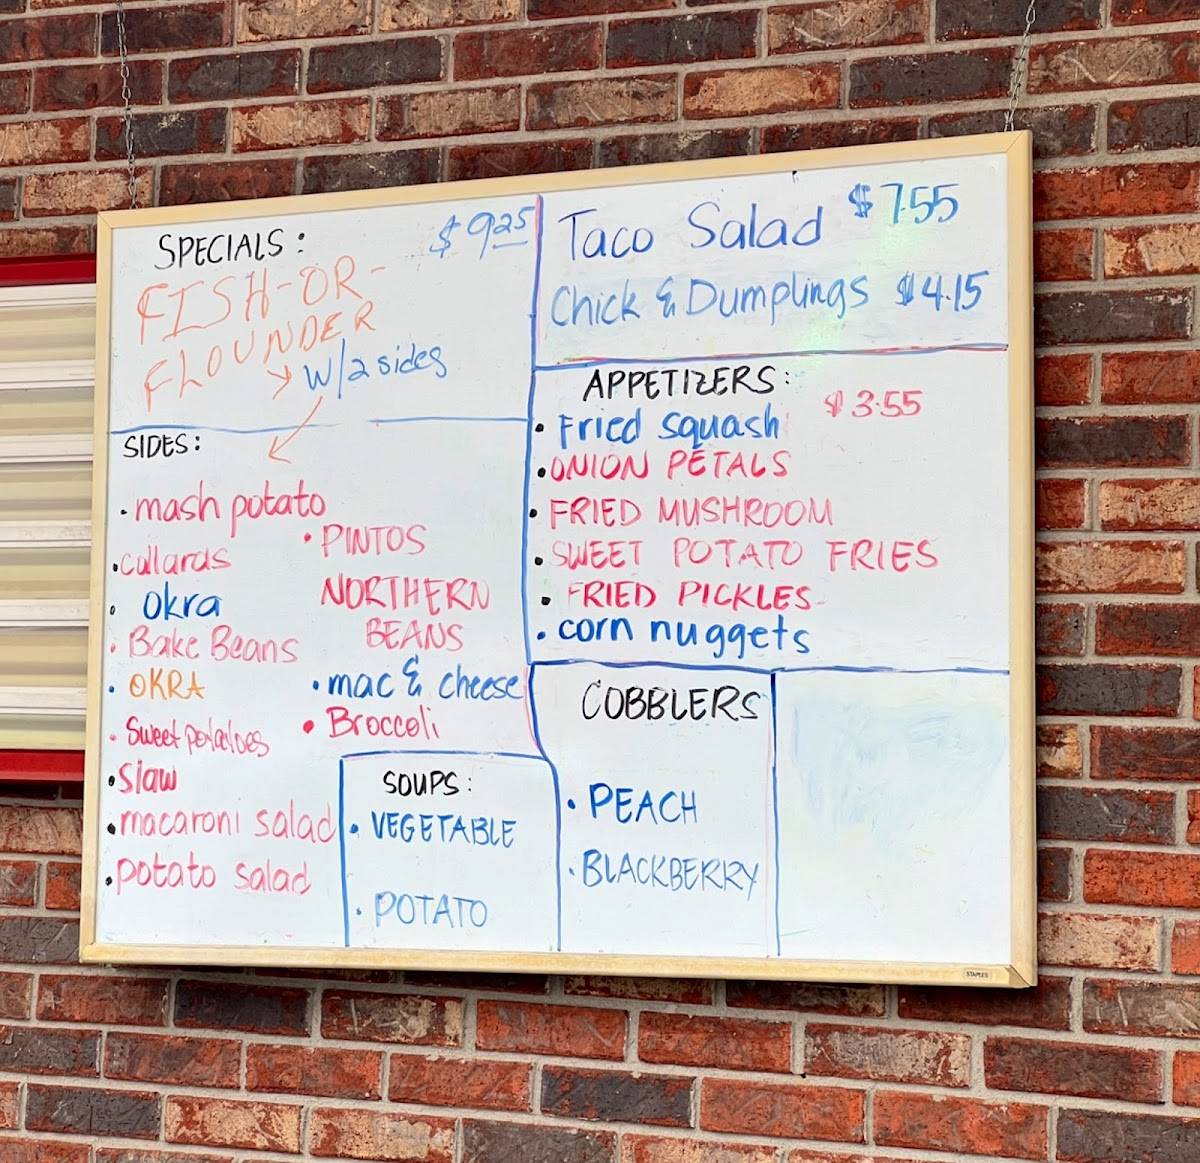 SPECIALS: $9.25
FISH-OR-
FLOUNDER
W/2 sides
SIDES:
• mash potato
• cullards
• Okra
• Bake Beans
• OKRA
• Sweet potatoes
• Slaw
• macaroni salad
• potato salad
• PINTOS
NORTHERN
BEANS
• mac & cheese
• Broccoli
SOUPS:
• VEGETABLE
• POTATO
Taco Salad $7.55
Chick & Dumplings $4.15
APPETIZERS: $3.55
• Fried squash
• ONION PETALS
• FRIED MUSHROOM
• SWEET POTATO FRIES
• FRIED PICKLES
• corn nuggets
COBBLERS
• PEACH
• BLACKBERRY
STAPLES